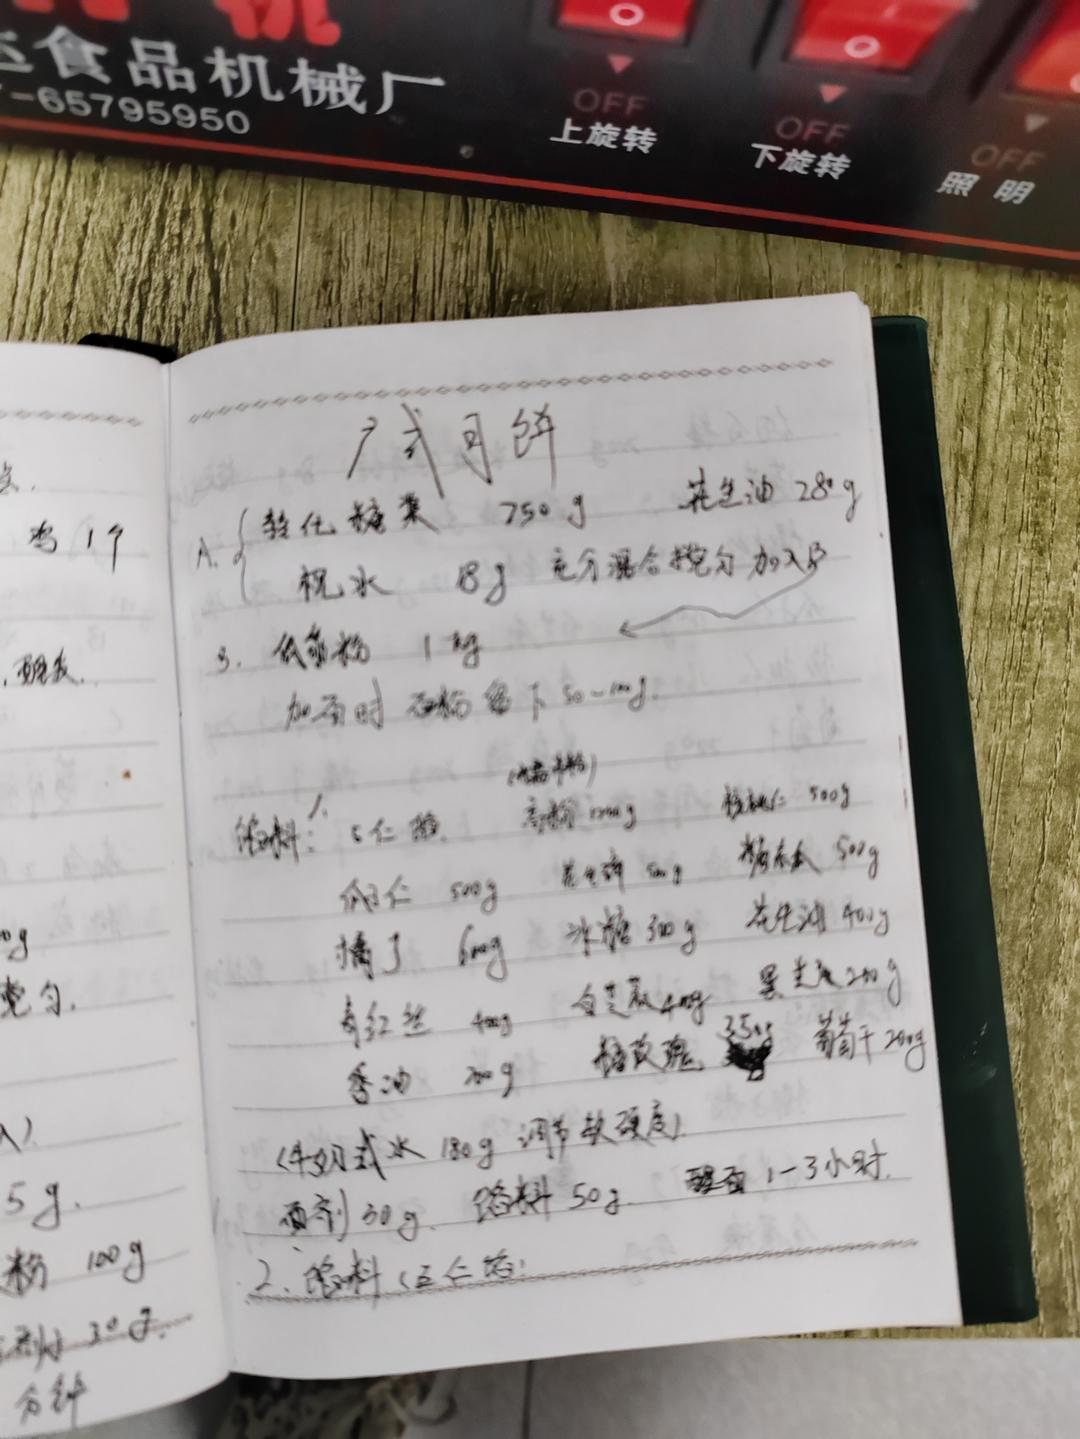 机
食品机械厂
-65795950
OFF
OFF
OFF
上旋转
下旋转
照明
鸡 1个
g
匀.
5g.
粉 100g
30g.
分钟
广式月饼
A. { 转化糖浆 750g 花生油 280g
枧水 18g 充分混合搅匀 加入B
3. 低筋粉 1kg
加面时 面粉留下 50-100g.
馅料: 1. 五仁馅. 高粉 1200g 核桃仁 500g
瓜子仁 500g 花生碎 500g 糖冬瓜 500g
橘丁 600g 冰糖 300g 花生油 400g
青红丝 400g 白芝麻 400g 黑芝麻 200g
香油 200g 糖玫瑰 350g 葡萄干 200g
(牛奶或水 180g 调节软硬度).
面剂 30g. 馅料 50g. 醒面 1-3小时.
2. 馅料 (五仁馅: